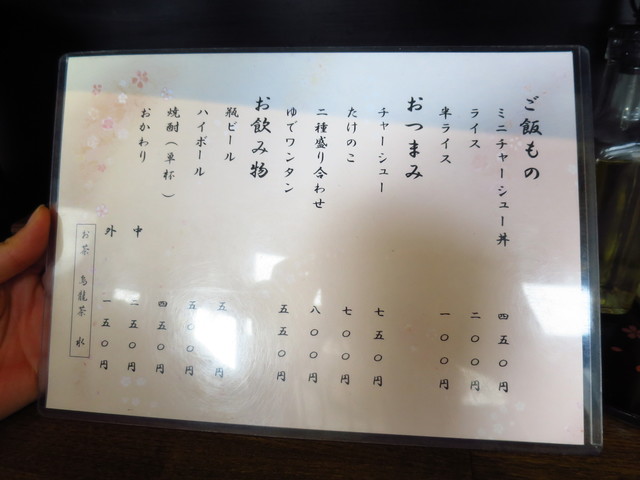 ご飯もの
ミニチャーシュー丼 四五〇円
ライス 二〇〇円
半ライス 一〇〇円
おつまみ
チャーシュー 七五〇円
たけのこ 七〇〇円
二種盛り合わせ 八〇〇円
ゆでワンタン 五五〇円
お飲み物
瓶ビール 五
ハイボール 五〇〇円
焼酎（単杯） 四五〇円
おかわり 中 二五〇円
外 一五〇円
お茶 烏龍茶 水